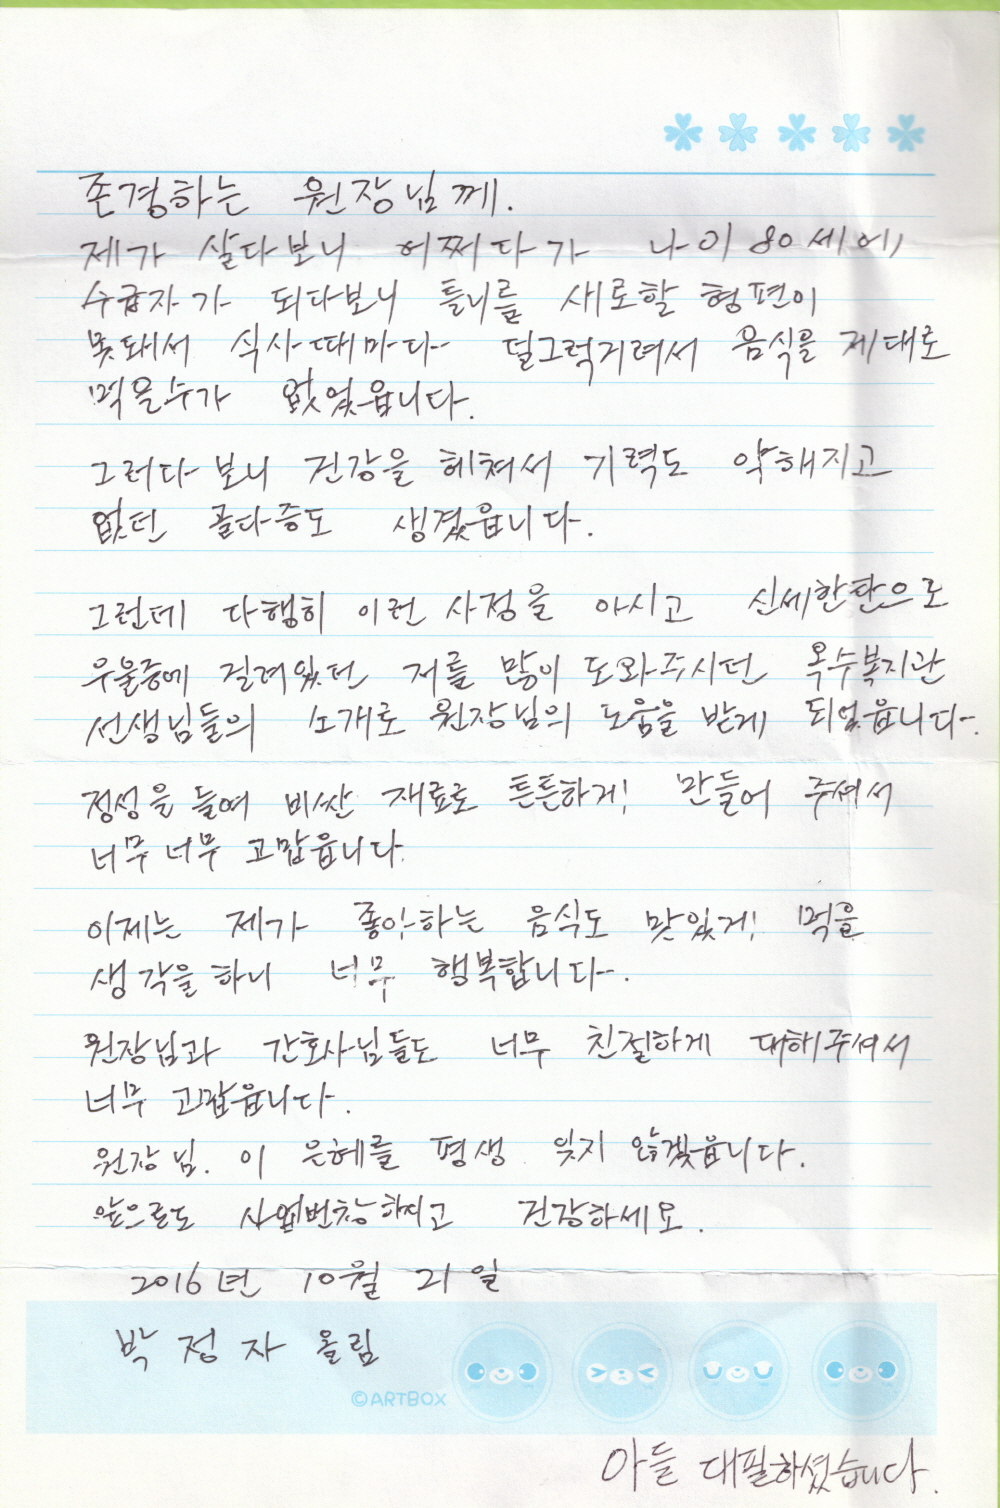 존경하는 원장님께.
제가 살다보니 어쩌다가 나이 80세에
수급자가 되다보니 틀니를 새로할 형편이
못돼서 식사때마다 덜그럭거려서 음식을 제대로
먹을수가 없었읍니다.
그러다보니 건강을 헤쳐서 기력도 약해지고
없던 골다증도 생겼읍니다.
그런데 다행히 이런 사정을 아시고 신세한탄으로
우울증에 걸려있던 저를 많이 도와주시던 옥수복지관
선생님들의 소개로 원장님의 도움을 받게 되었읍니다.
정성을 들여 비싼 재료로 튼튼하게 만들어 주셔서
너무너무 고맙읍니다.
이제는 제가 좋아하는 음식도 맛있게 먹을
생각을 하니 너무 행복합니다.
원장님과 간호사님들도 너무 친절하게 대해주셔서
너무 고맙읍니다.
원장님. 이 은혜를 평생 잊지 않겠읍니다.
앞으로도 사업번창하시고 건강하세요.
2016년 10월 21일
박정자 올림
©ARTBOX
아들 대필하셨습니다.